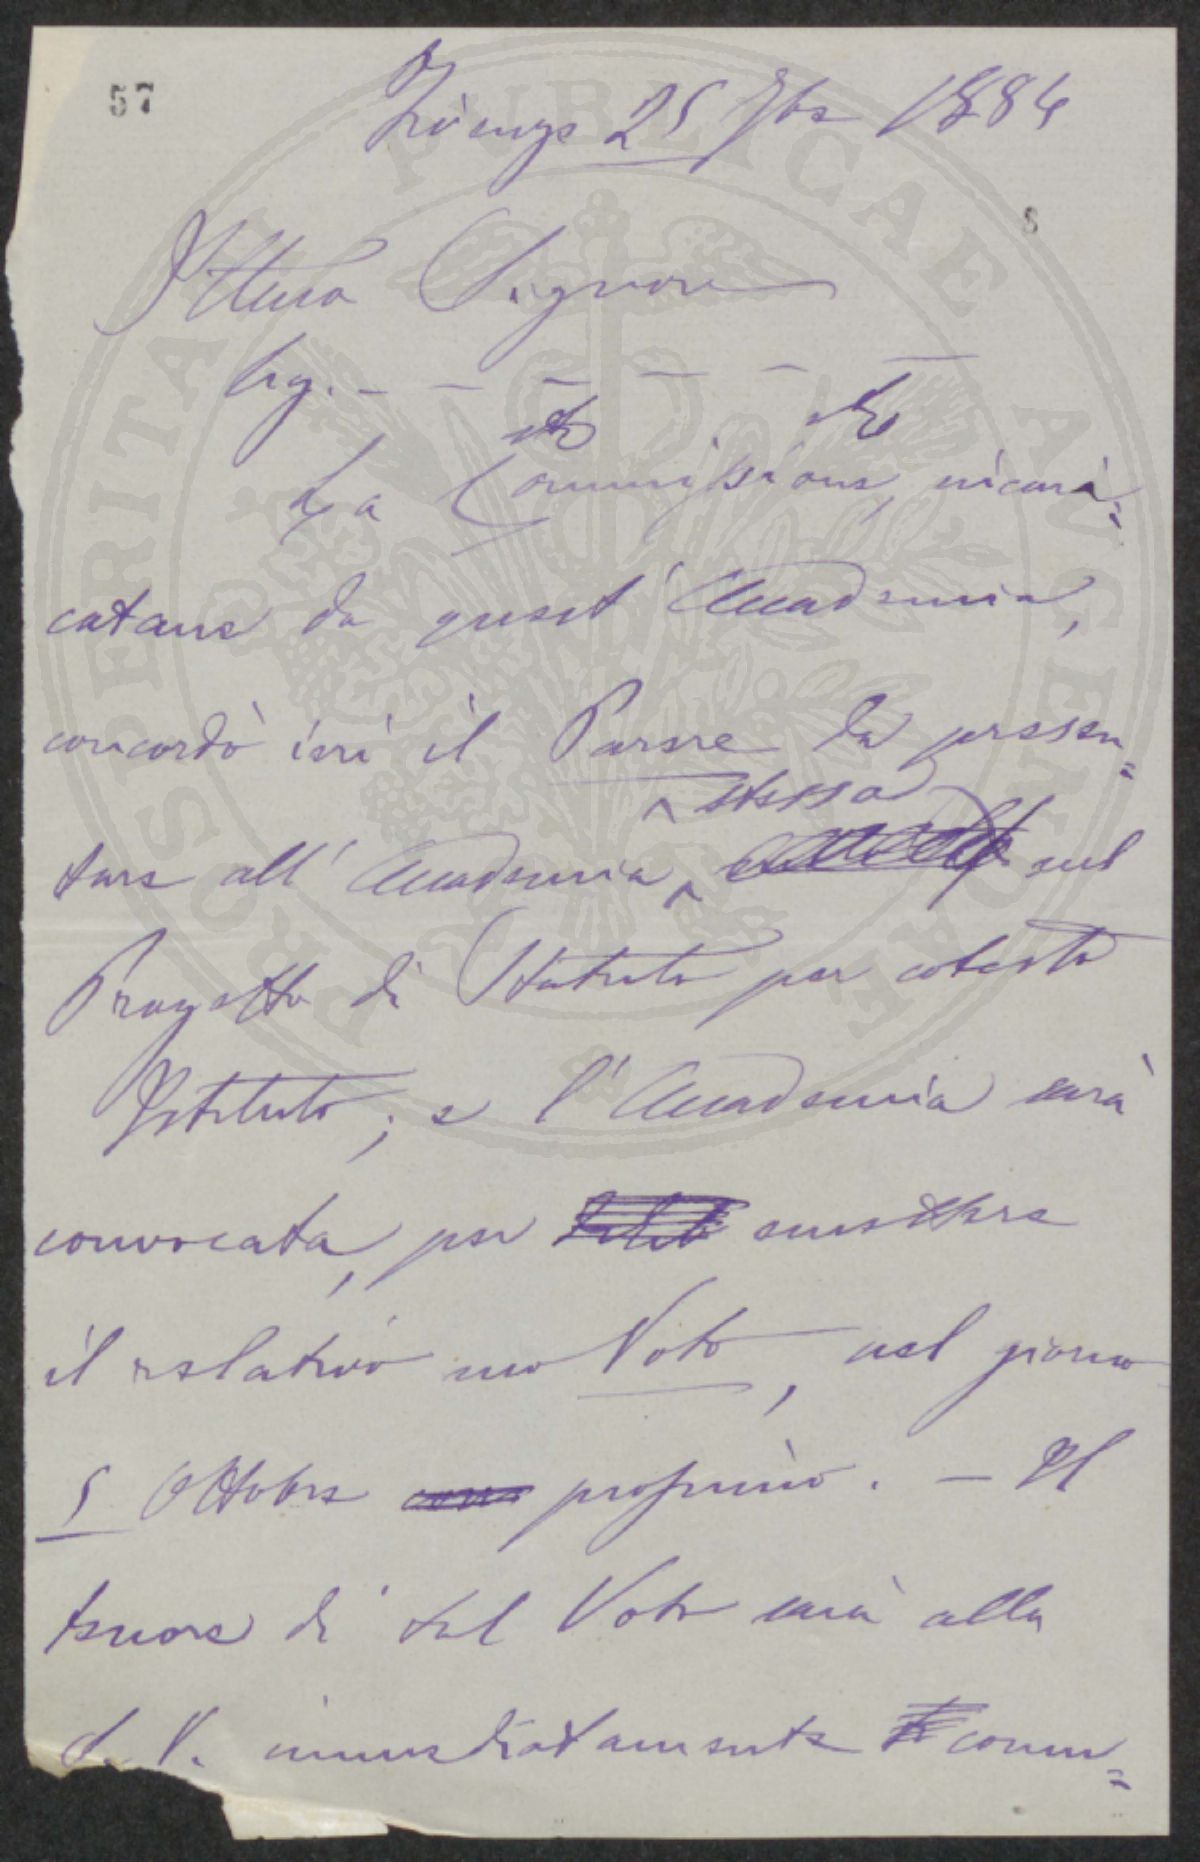 57
Firenze 25 7bre 1884
8
Ill.mo Signore
Sig. – – – – – –
La Commissione, incari=
catane da quest' Accademia,
concordò ieri il Parere da presen=
tare all' Accademia stessa sul
Progetto di Statuto per cotesto
Istituto; e l' Accademia sarà
convocata, per emettere
il relativo suo Voto, nel giorno
5 Ottobre prossimo. – Il
tenore di tal Voto sarà alla
S. V. immediatamente comu=
PROSPERITATI PUBLICAE AUGENDAE